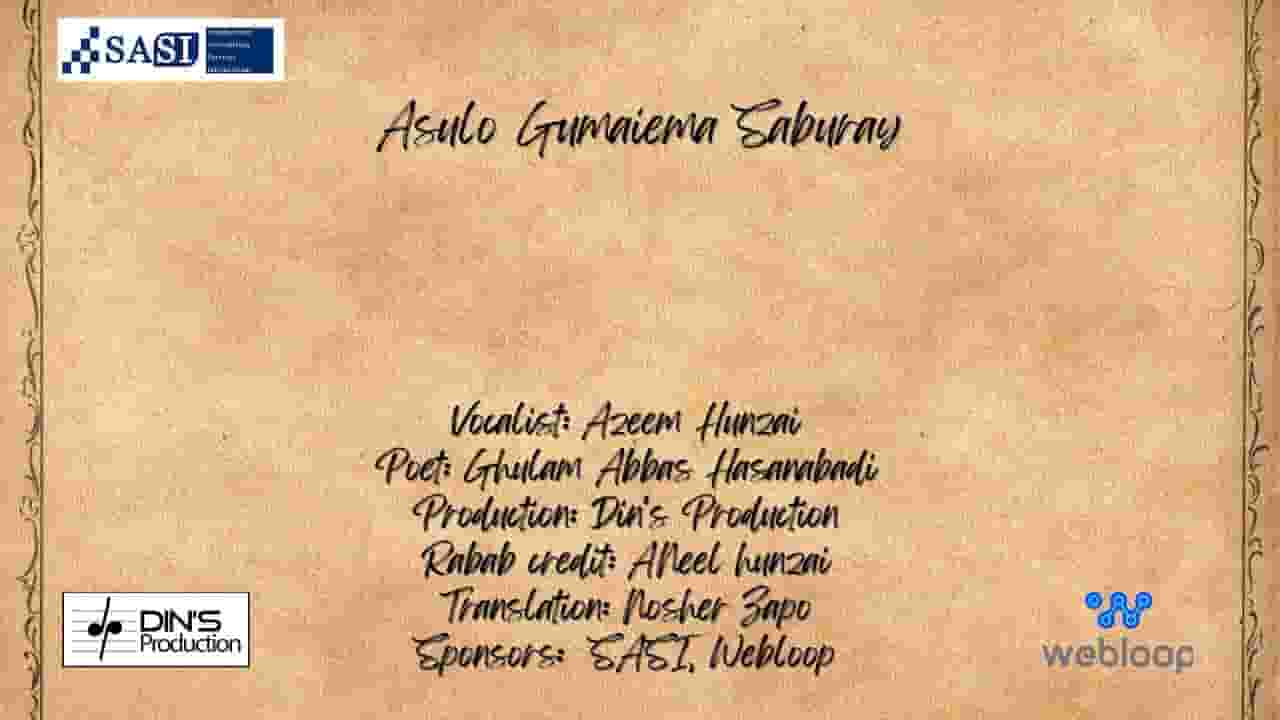 SASI
Asulo Gumaiema Saburay
Vocalist: Azeem Hunzai
Poet: Ghulam Abbas Hasanabadi
Production: Din's Production
Rabab credit: ANeel hunzai
Translation: Nosher Zapo
Sponsors: SASI, Webloop
DIN'S
Production
webloop